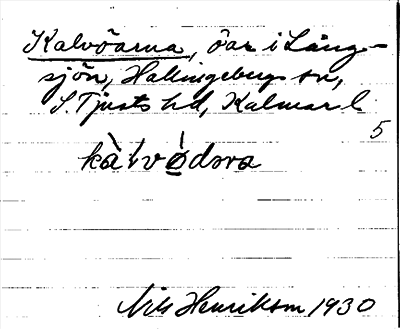 Kalvöarna, öar i Lång-
sjön, Hallingebergs sn,
S. Tjusts hd, Kalmar l.
5
Nils Henrikson 1930